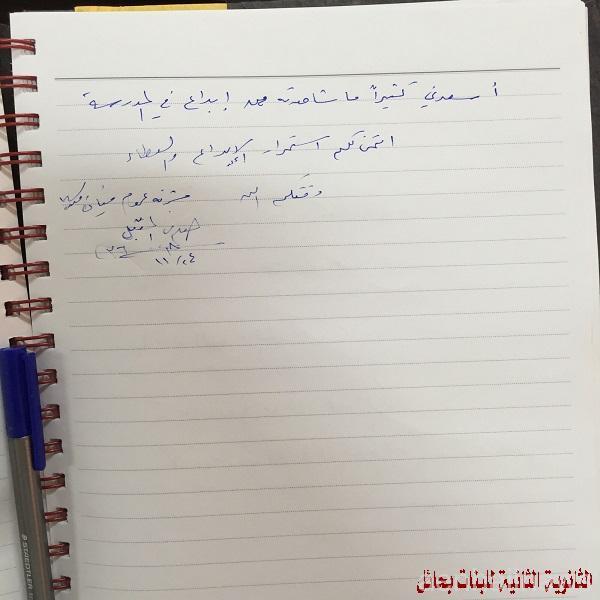 أسعدني كثيراً ما شاهدته من إبداع في المدرسة
اتمنى لكم استمرار الإبداع والعطاء
وفقكم الله
مشرفة عموم
١١/٢٤
STAEDTLER
الثانوية الثانية للبنات بحائل